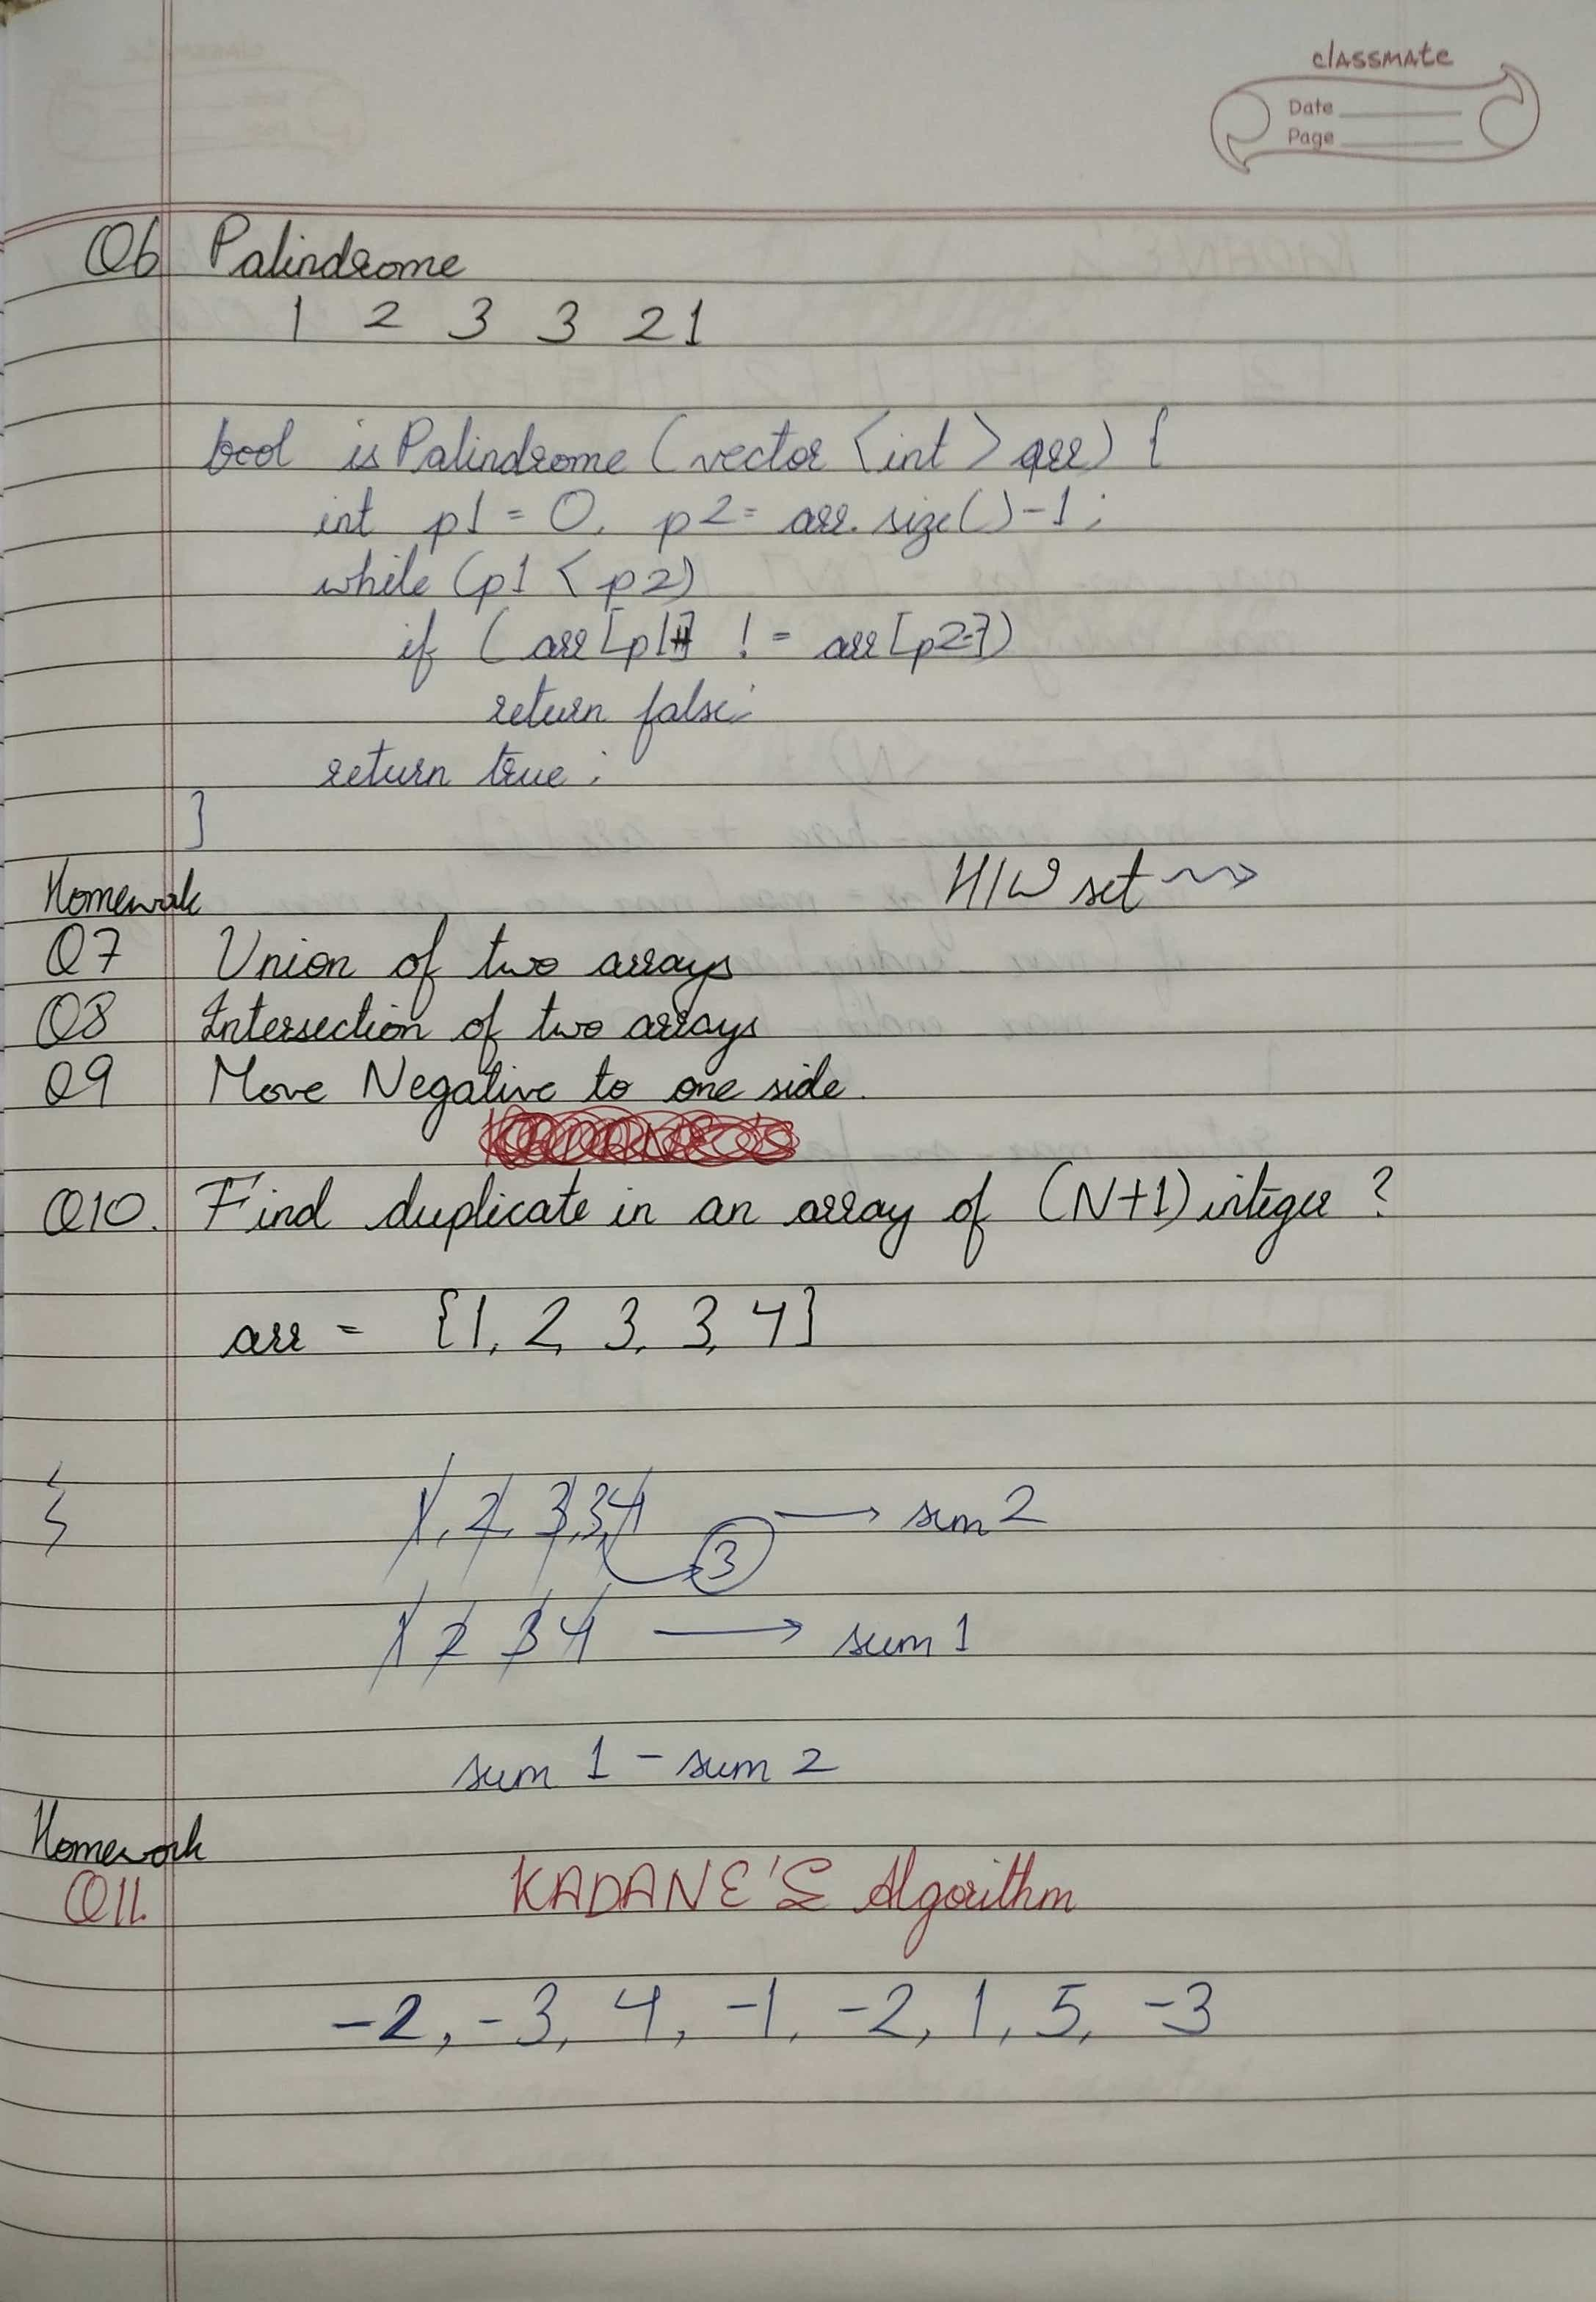 classmate
Date
Page
Q6 Palindrome
1 2 3 3 2 1
bool isPalindrome (vector <int> arr) {
int p1 = 0, p2 = arr.size()-1;
while (p1 < p2)
if (arr[p1++] != arr[p2--])
return false;
return true;
}
H/W set ⇝
Homework
Q7 Union of two arrays
Q8 Intersection of two arrays
Q9 Move Negative to one side.
Q10. Find duplicate in an array of (N+1) integer ?
arr = {1, 2, 3, 3, 4}
1, 2, 3, 3, 4 → sum 2
3
1 2 3 4 → sum 1
sum 1 - sum 2
Homework
Q11. KADANE'S Algorithm
-2, -3, 4, -1, -2, 1, 5, -3